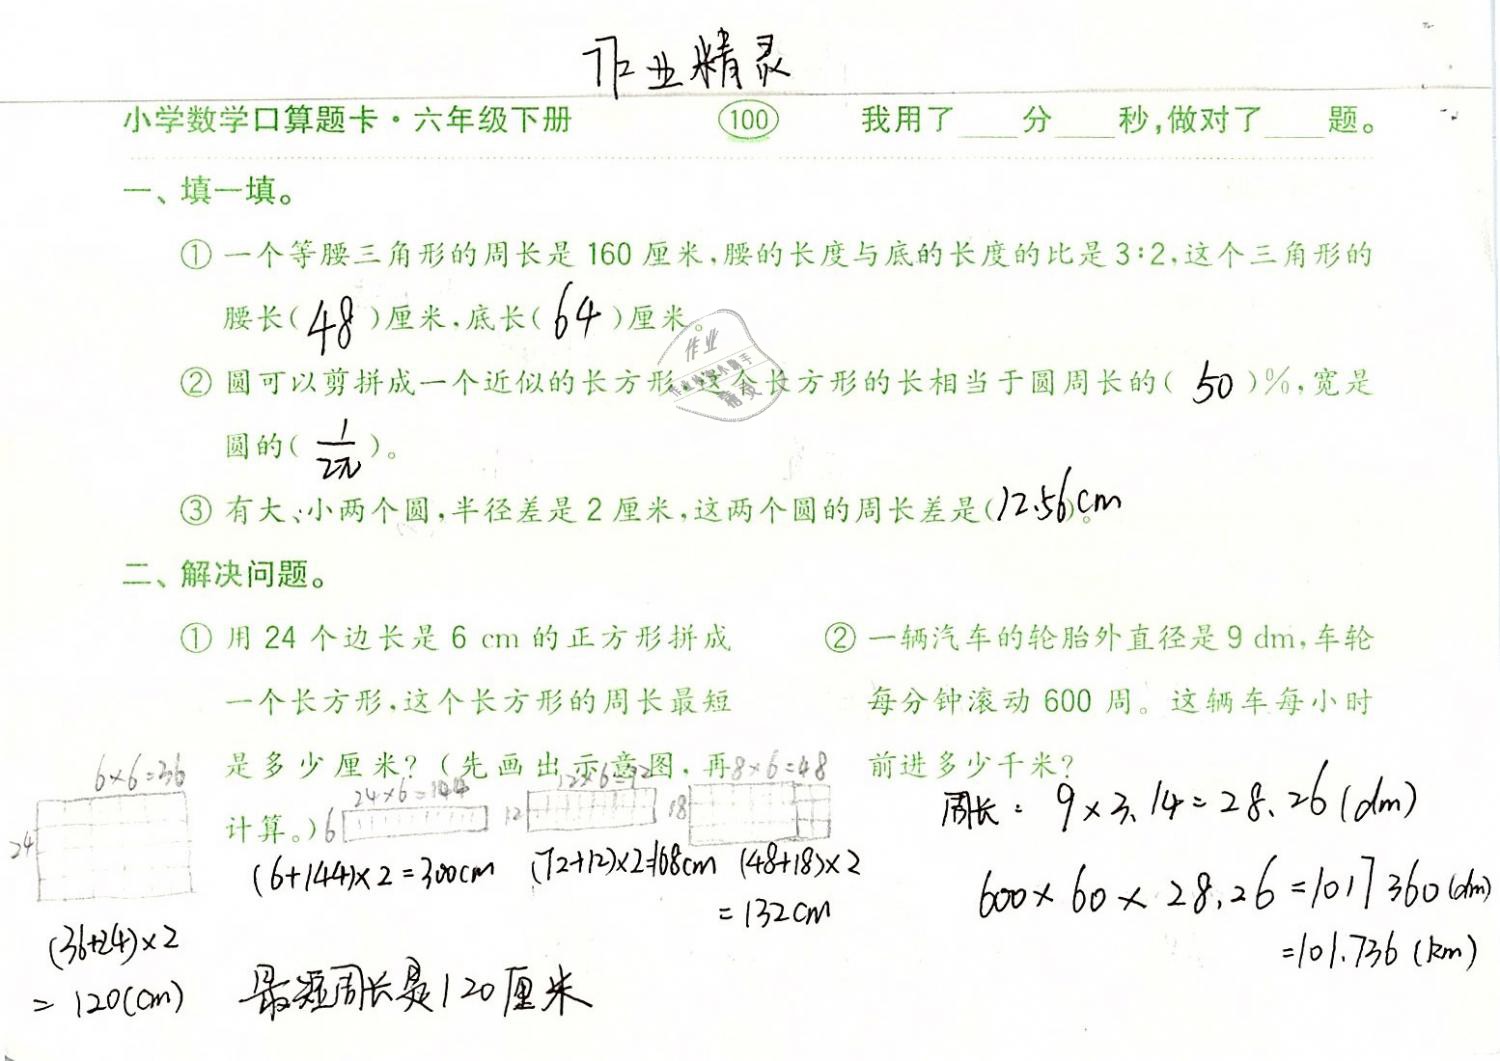 作业精灵
小学数学口算题卡·六年级下册 100 我用了____分____秒,做对了____题。
一、填一填。
① 一个等腰三角形的周长是 160 厘米,腰的长度与底的长度的比是 3:2,这个三角形的
腰长( 48 )厘米,底长( 64 )厘米。
② 圆可以剪拼成一个近似的长方形,这个长方形的长相当于圆周长的( 50 )%,宽是
圆的( 1/2π )。
③ 有大、小两个圆,半径差是 2 厘米,这两个圆的周长差是(12.56)cm。
二、解决问题。
① 用 24 个边长是 6 cm 的正方形拼成
一个长方形,这个长方形的周长最短
是多少厘米?(先画出示意图,再
计算。)
6×6=36
24
24×6=144
6
12×6=72
12
8×6=48
18
(6+144)×2=300cm
(72+12)×2=168cm
(48+18)×2
=132cm
(36+24)×2
=120(cm)
最短周长是120厘米
② 一辆汽车的轮胎外直径是 9 dm,车轮
每分钟滚动 600 周。这辆车每小时
前进多少千米?
周长:9×3.14=28.26(dm)
600×60×28.26=1017360(dm)
=101.736(km)
作业
精灵